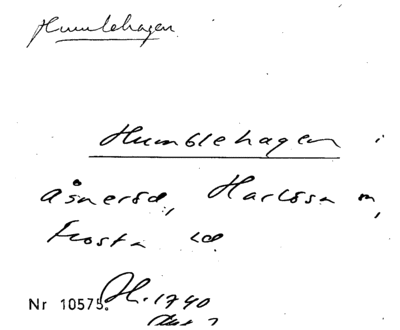 Humlehagen
Humblehagen i
Åsneröd, Harlösa sn,
Frosta hd
Nr 10575. Ht. 1740